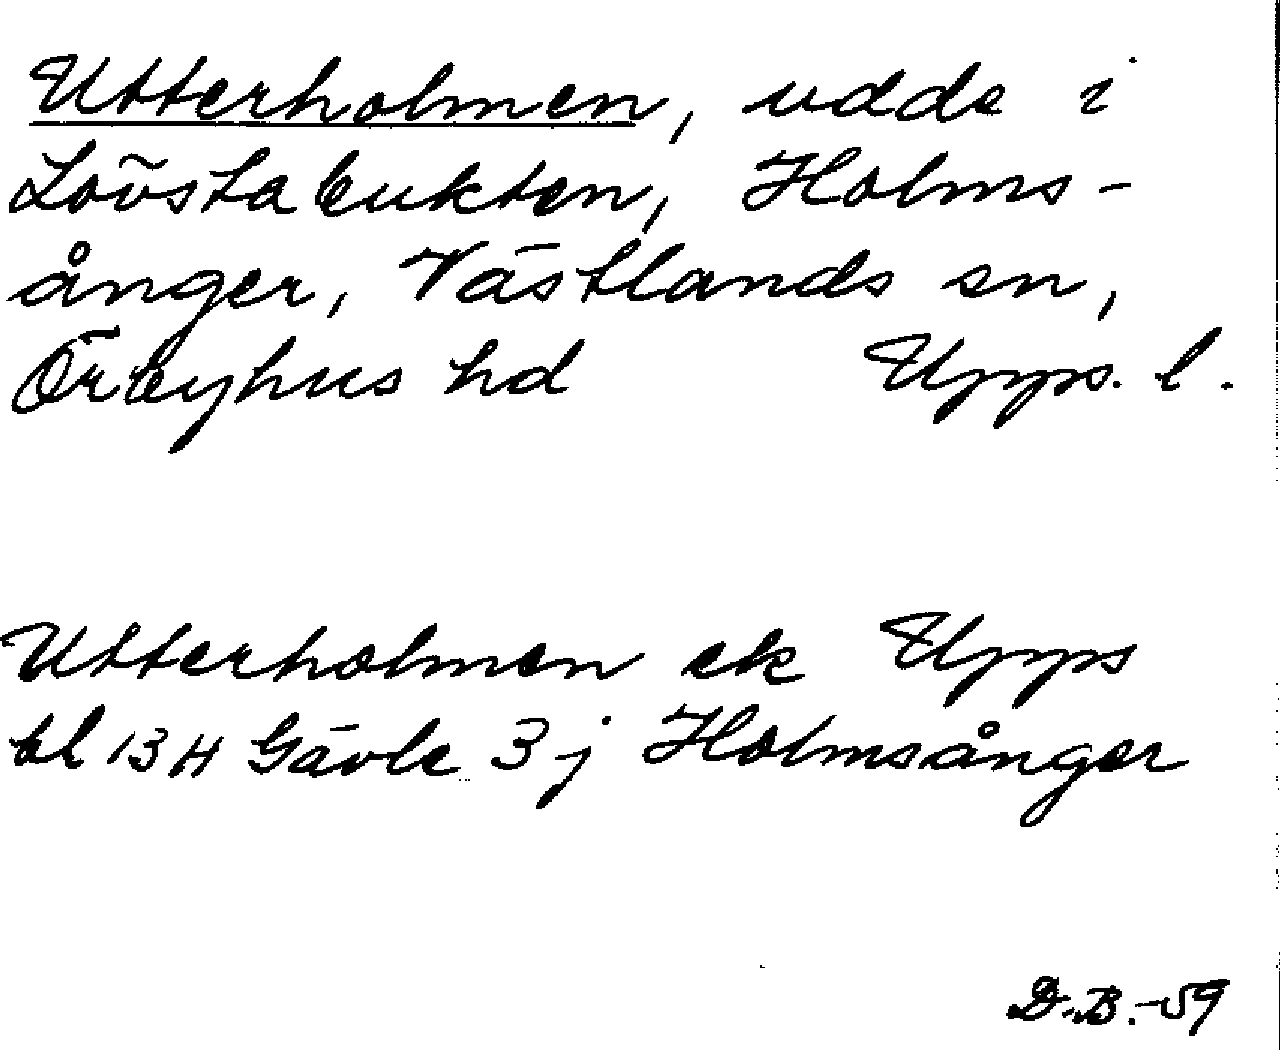 Utterholmen, udde i
Lövstabukten, Holms-
ånger, Västlands sn,
Örbyhus hd Upps. l.
Utterholmen ek Upps
bl 13H Gävle 3j Holmsånger
D.B.-59